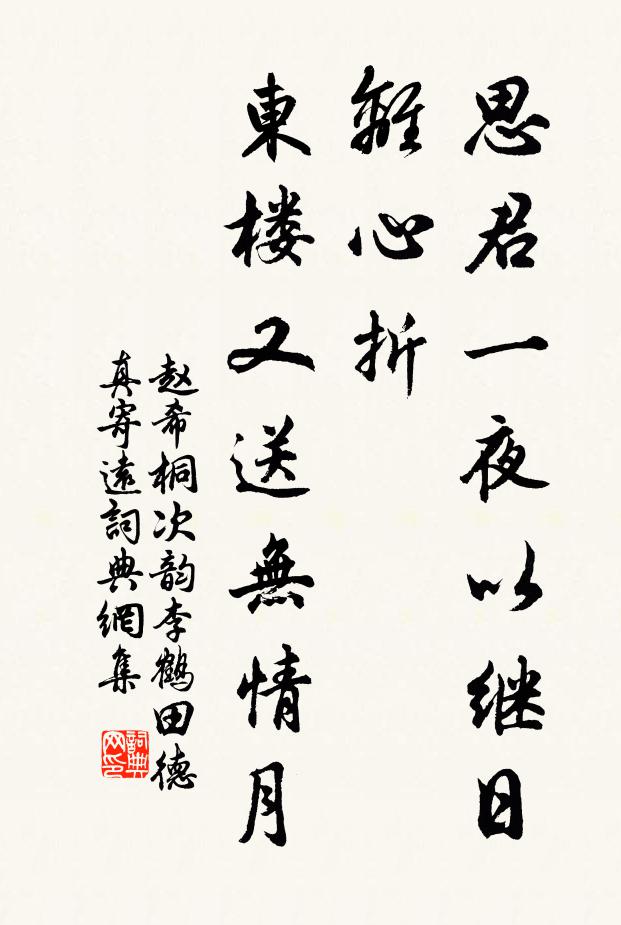 思君一夜以继日
離心折
東楼又送無情月
赵希桐次韵李鹤田德
真寄遠詞典網集
詞典
网印